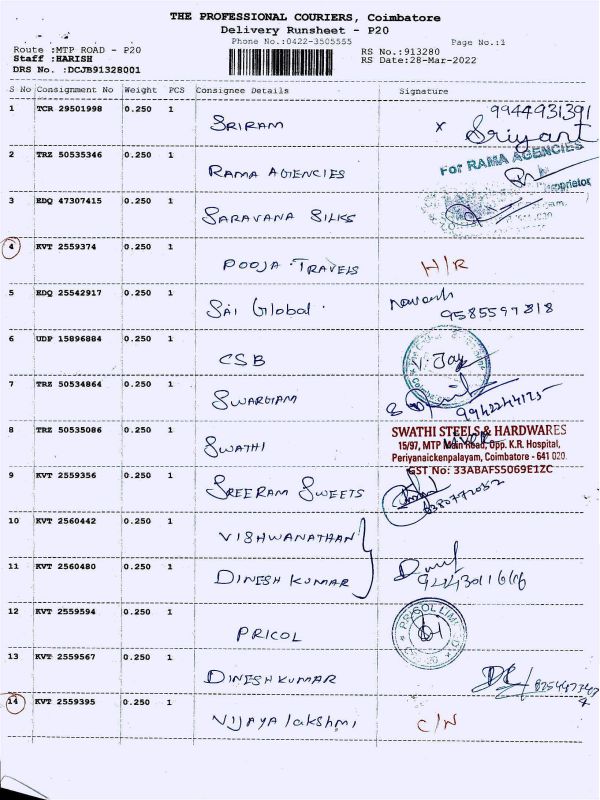 THE PROFESSIONAL COURIERS, Coimbatore
Delivery Runsheet - P20
Phone No.:0422-3505555
Page No.:1
Route :MTP ROAD - P20
Staff :HARISH
DRS No. :DCJB91328001
RS No.:913280
RS Date:28-Mar-2022
S No Consignment No Weight PCS Consignee Details Signature
1 TCR 29501998 0.250 1 SRIRAM x 9944931391
Sriyant
2 TRZ 50535346 0.250 1 RAMA AGENCIES For RAMA AGENCIES
Proprietor
3 EDQ 47307415 0.250 1 SARAVANA SILKS
4 KVT 2559374 0.250 1 POOJA TRAVELS H/R
5 EDQ 25542917 0.250 1 SAI Global
9585597818
6 UDP 15896884 0.250 1 CSB
7 TRZ 50534864 0.250 1 SWARGAM
9942244125
8 TRZ 50535086 0.250 1 SWATHI SWATHI STEELS & HARDWARES
15/97, MTP Main Road, Opp. K.R. Hospital,
Periyanaickenpalayam, Coimbatore - 641 020.
GST No: 33ABAFS5069E1ZC
9 KVT 2559356 0.250 1 SREERAM SWEETS
10 KVT 2560442 0.250 1 VISHWANATHAN
11 KVT 2560480 0.250 1 DINESH KUMAR
12 KVT 2559594 0.250 1 PRICOL PRICOL LIMITED
13 KVT 2559567 0.250 1 DINESHKUMAR
14 KVT 2559395 0.250 1 VIJAYA lakshmi C/N